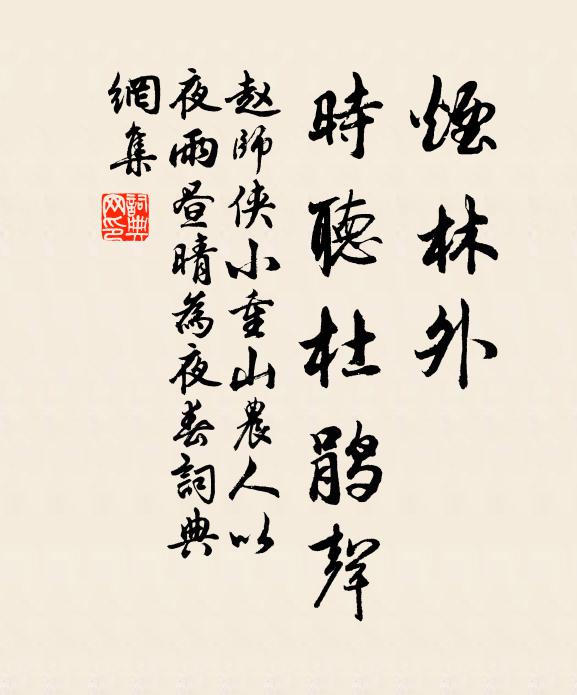 煙林外
時聽杜鵑聲
赵師侠小重山農人以
夜雨昼晴為夜春詞典
網集
詞典
网印